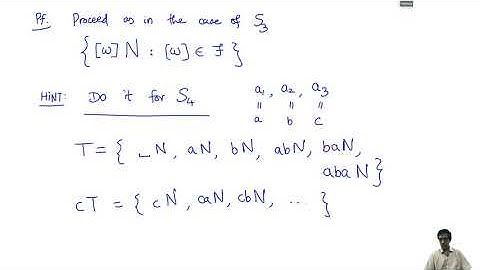 Pf. Proceed as in the case of S₃
{ [w] N : [w] ∈ F }
HINT: Do it for S₄ a₁, a₂, a₃
" " "
a b c
T = { ␣N, aN, bN, abN, baN,
abaN }
cT = { cN, caN, cbN, ... }